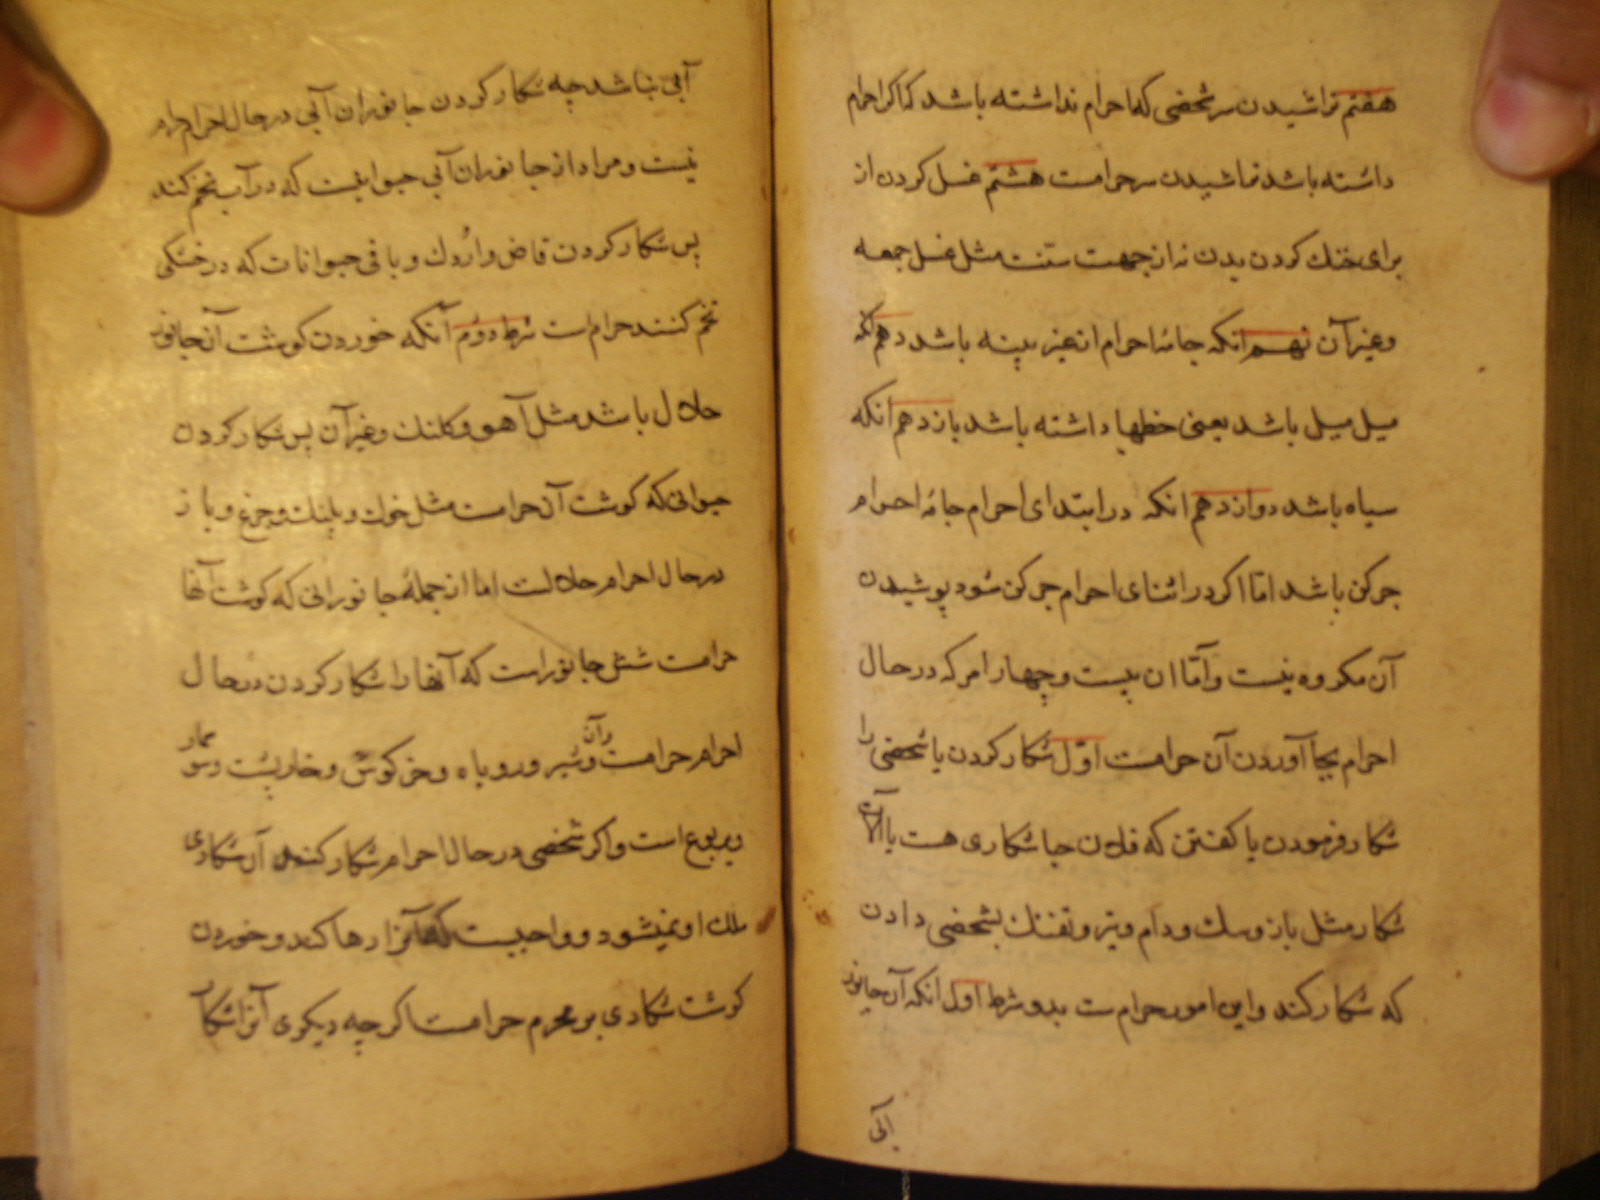 هفتم تراشیدن سر شخصی که احرام نداشته باشد که اگر احرام
داشته باشد تراشیدن سر حرامست هشتم غسل کردن از
برای خنك کردن بدن نه از جهت سنت مثل غسل جمعه
وغیر آن نهم انکه جامهٔ احرام از غیر پنبه باشد دهم انکه
میل میل باشد یعنی خطها داشته باشد یازدهم انکه
سیاه باشد دوازدهم انکه در ابتدای احرام جامهٔ احرام
چرکن باشد امّا اکر در اثنای احرام چرکن شود پوشیدن
آن مکروه نیست وامّا ان بیست وچهار امر که در حال
احرام بجا آوردن آن حرامست اوّل شکار کردن یا شخصی را
شکار فرمودن یا کفتن که فلان جا شکاری هست یا آلات
شکار مثل باز وسك ودام وتیر وتفنك بشخصی دادن
که شکار کند واین امور حرام ست بدو شرط اول انکه آن جانور
آبی
آبی نباشد چه شکار کردن جانوران آبی در حال احرام حرام
نیست ومراد از جانوران آبی حیوانیست که در آب تخم کند
پس شکار کردن قاض واُردك وباقی حیوانات که در خشکی
تخم کنند حرام است شرط دوُم آنکه خوردن کوشت آن جانور
حلال باشد مثل آهو وکلنك وغیر آن پس شکار کردن
حیوانی که کوشت آن حرامست مثل خوك وپلنك وچرغ وباز
در حال احرام حلالست اما از جملهٔ جانورانی که کوشت آنها
حرامست شش جانور است که آنها را شکار کردن در حال
احرام حرامست وآن شیر وروباه وخرکوش وخارپشت وسوسمار
ویربوع است واکر شخصی در حال احرام شکار کند آن شکاری
ملك او نمیشود وواجبست که آنرا رها کند وخوردن
کوشت شکاری بر محرم حرامست اکرچه دیکری آنرا شکار